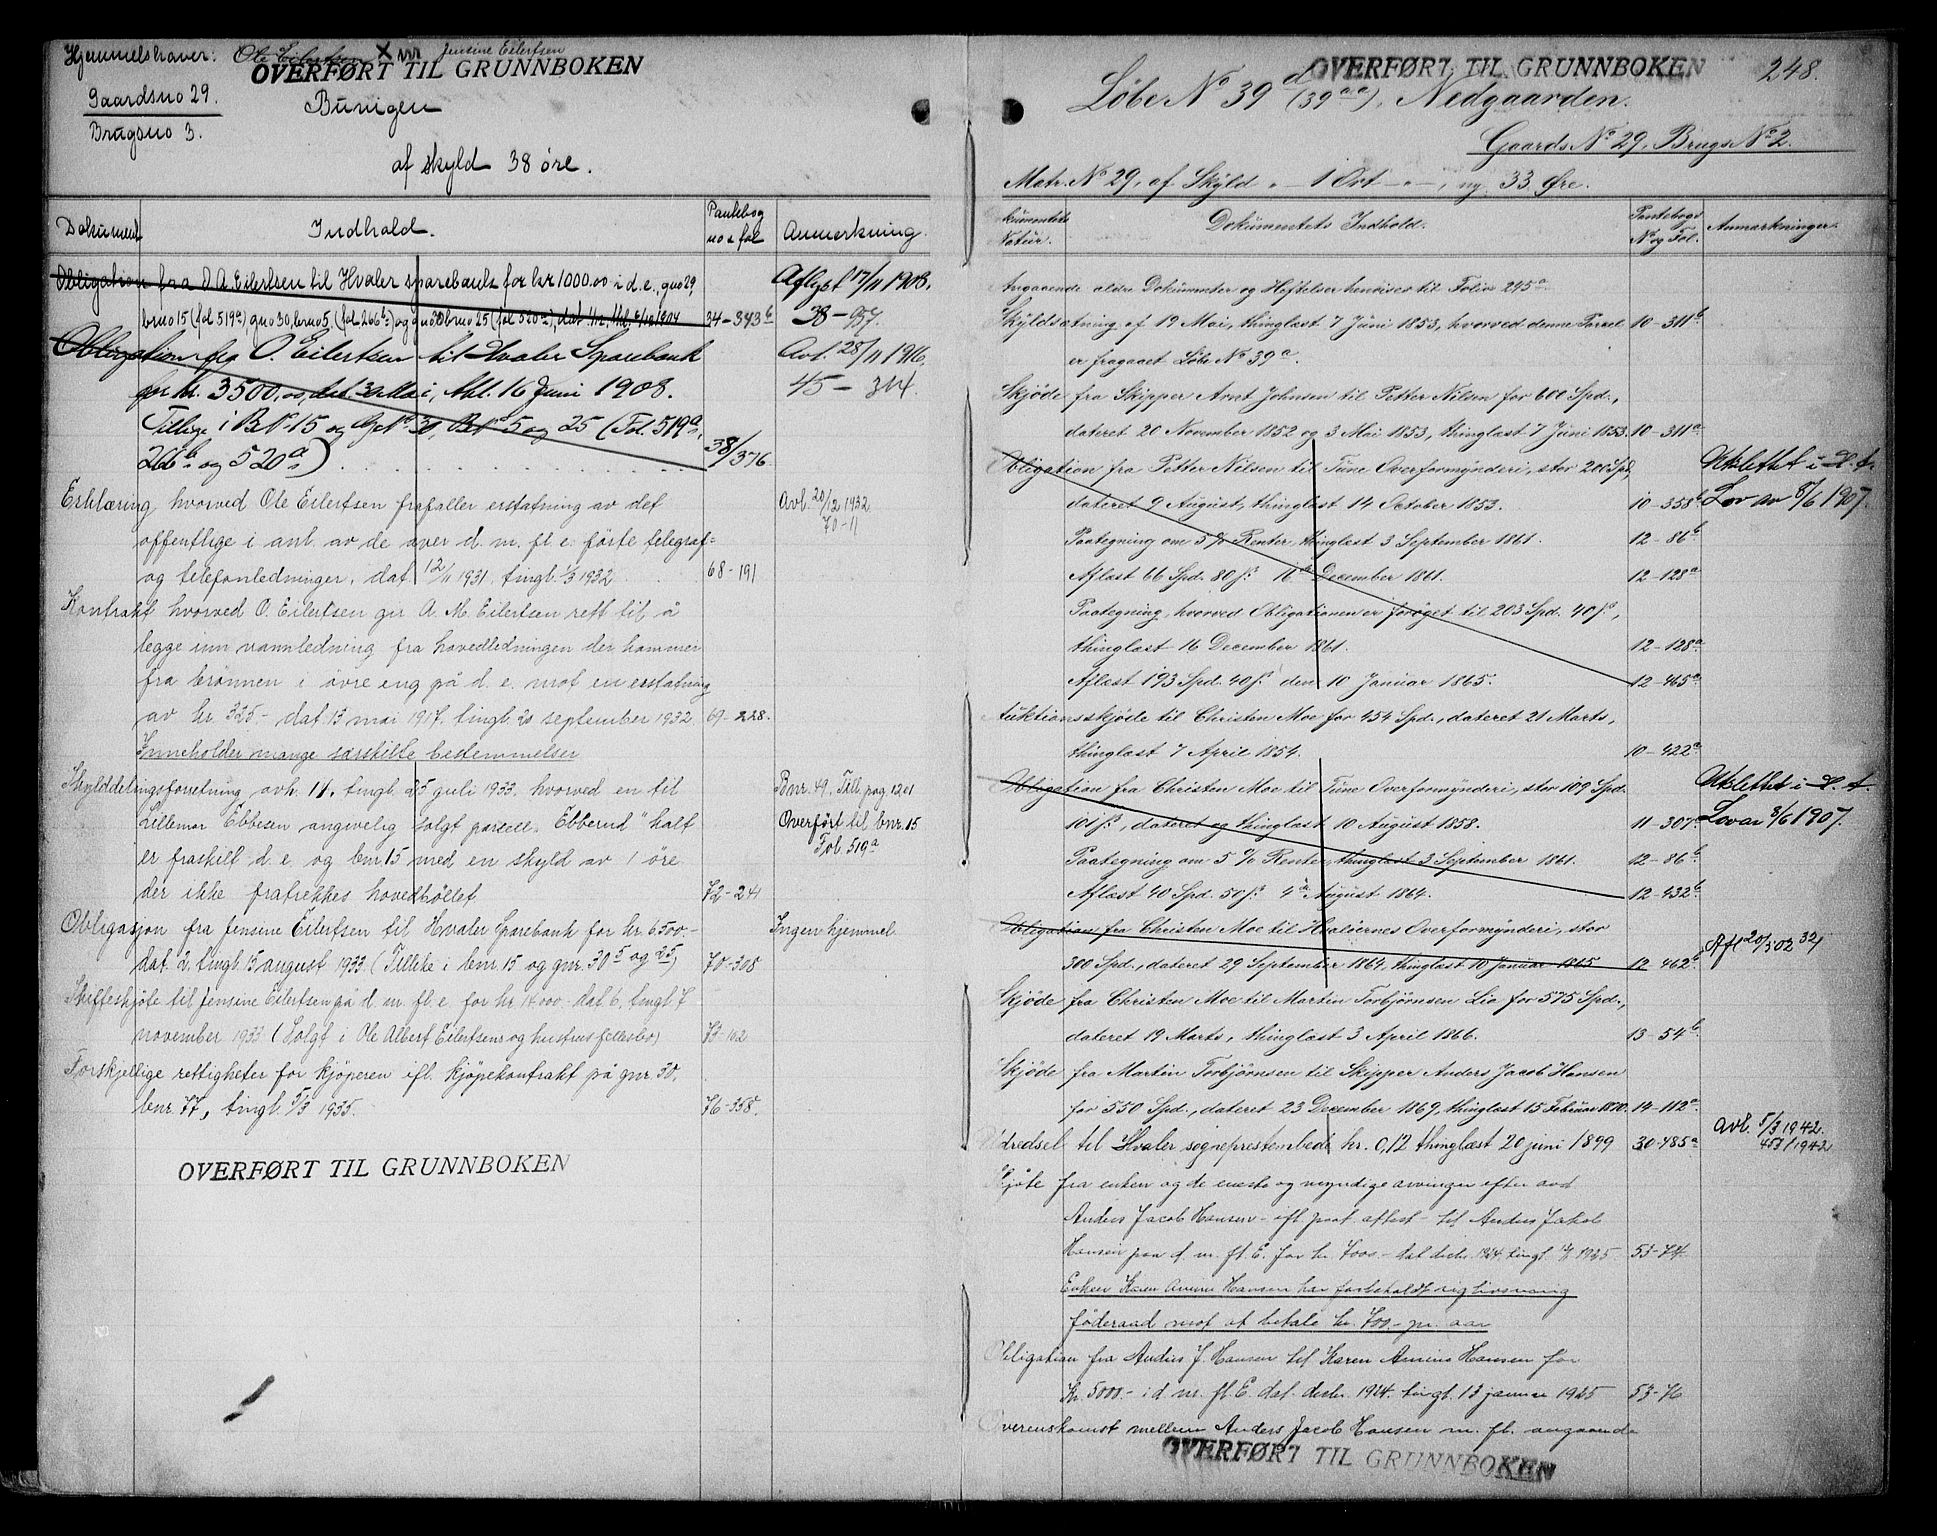 Hjemmelshaver: Ole Eilertsen X Jensine Eilertsen
OVERFØRT TIL GRUNNBOKEN
Gaardsno 29.
Brugsno 3.
Bunigen
af skyld 38 øre.
Dokument
Indhold.
Pantebog no & fol
Anmerkning.
Obligation fra O. A. Eilertsen til Hvaler sparebank for kr 1000.00 i d. e., gno 29,
Aflyst 17/11 1908.
bno 15 (fol 519a) gno 30, brno 5, (fol 266b) og gno 30 brno 25 (fol 520a), dat 1/12, thl. 6/12 1904
34-343b
38-957.
Obligation fra O. Eilertsen til Hvaler Sparebank
Avl. 28/11 1916.
for kr. 3500.00, dat. 30 Mai, thl. 16 Juni 1908.
45-314.
Tillige i BN° 15 og GN° 30, BN° 5 og 25 (Fol. 519a,
266b og 520a)
38/376
Erklæring hvorved Ole Eilertsen frafaller erstatning av det
Avl. 20/12 1932
70-11
offentlige i anl. av de over d. m. fl. e. førte telegraf-
og telefonledninger, dat. 12/11 1931, tingl. 1/3 1932
68-191
Kontrakt hvorved O. Eilertsen gir A. M. Eilertsen rett til å
legge inn vannledning fra hovedledningen der kommer
fra brønnen i øvre eng på d. e. mot en erstatning
av kr. 325- dat. 15 mai 1917, tingl. 20 september 1932
69-228.
Inneholder mange særskilte bestemmelser
Skylddelingsforretning, avh. 14. tingl. 25 juli 1933, hvorved en til
Bnr. 49. Till. pag 1201
Lillemor Ebbesen angivelig solgt parsell "Ebberud" halt
Overført til bnr. 15
er fraskilt d. e. og bnr. 15 med en skyld av 1 øre
Fol. 519a
der ikke fratrekkes hovedbøllet
72-241
Obligasjon fra Jensine Eilertsen til Hvaler Sparebank for kr. 6500.-
Ingen hjemmel
dat. 2. tingl. 15 august 1933. (Tillike i bnr. 15 og gnr. 30 5 og 25)
70-308
Skifteskjøte til Jensine Eilertsen på d. m. fl. e. for kr. 14000.- dat 6, tingl. 7
november 1933 (Solgt i Ole Albert Eilertsens og hustrus fellesbo)
73-102
Forskjellige rettigheter for kjøperen ifl. kjøpekontrakt på gnr. 30,
bnr. 77, tingl. 5/3 1935.
76-358.
OVERFØRT TIL GRUNNBOKEN
OVERFØRT TIL GRUNNBOKEN
248.
Løbe N° 39d (39aa), Nedgaarden.
Gaards N° 29, Brugs N° 2.
Matr. N° 29, af Skyld " - 1 Ort - " -, ny 33 Øre.
Dokumentets Natur.
Dokumentets Indhold.
Pantebogs N° og Fol.
Anmærkninger.
Angaaende ældre Dokumenter og Heftelser henvises til Folio 245a
Skyldsætning af 19 Mai, thinglæst 7 Juni 1853, hvorved denne Parcel
10-311b
er fragaaet Løbe N° 39a.
Skjøde fra Skipper Arnt Johnsen til Petter Nilsen for 600 Spd.,
dateret 20 November 1852 og 3 Mai 1853, thinglæst 7 Juni 1853.
10-311a
Obligation fra Petter Nilsen til Tune Overformynderi, stor 200 Spd,
Udslettet i H. t.
dateret 9 August, thinglæst 14 October 1853.
10-358b
Lov av 8/6 1907.
Paategning om 5% Renter, thinglæst 3 September 1861.
12-86b
Aflæst 66 Spd. 80 ß 16de December 1861.
12-128a
Paategning, hvorved Obligationen er forøget til 203 Spd. 40 ß,
thinglæst 16 December 1861.
12-128a
Aflæst 193 Spd. 40 ß den 10 Januar 1865.
12-465a
Auktionsskjøde til Christen Moe for 454 Spd., dateret 21 Marts,
thinglæst 7 April 1854.
10-422a
Obligation fra Christen Moe til Tune Overformynderi, stor 109 Spd
Udslettet i H. t.
101 ß, dateret og thinglæst 10 August 1858.
11-307a
Lov av 8/6 1907.
Paategning om 5% Renter, thinglæst 3 September 1861.
12-86b
Aflæst 40 Spd. 50 ß 4de August 1864.
12-432b
Obligation fra Christen Moe til Hvaløernes Overformynderi, stor
Afl 20/5 02 32/
300 Spd., dateret 29 September 1864, thinglæst 10 Januar 1865
12-462b
Skjøde fra Christen Moe til Martin Torbjørnsen Lia for 575 Spd.,
dateret 19 Marts, thinglæst 3 April 1866.
13-54b
Skjøde fra Martin Torbjørnsen til Skipper Anders Jacob Hansen
for 550 Spd., dateret 23 December 1869, thinglæst 15 Februar 1870.
14-112a
Udredsel til Hvaler sogneprestembede kr. 0,12 thinglæst 20 juni 1899
30-485a
Avl. 5/3 1942.
453/1942
Skjøte fra enken og de eneste og myndige arvinger efter avd
Anders Jacob Hansen - ifl paat. attest - til Anders Jakob
Hansen paa d. m. fl. E. for kr. 7000.- dat decbr. 1924 tingl. 13/1 1925
53-74
Enken Karen Amine Hansen har forbeholdt sig livsvarig
føderaad mot at betale kr. 700.- pr. aar
Obligation fra Anders J. Hansen til Karen Amine Hansen for
Kr. 5000.- i d. m. fl. E. dat. decbr. 1924. tingl. 13 januar 1925
53-76
Overenskomst mellem Anders Jacob Hansen m. fl. angaaende
OVERFØRT TIL GRUNNBOKEN